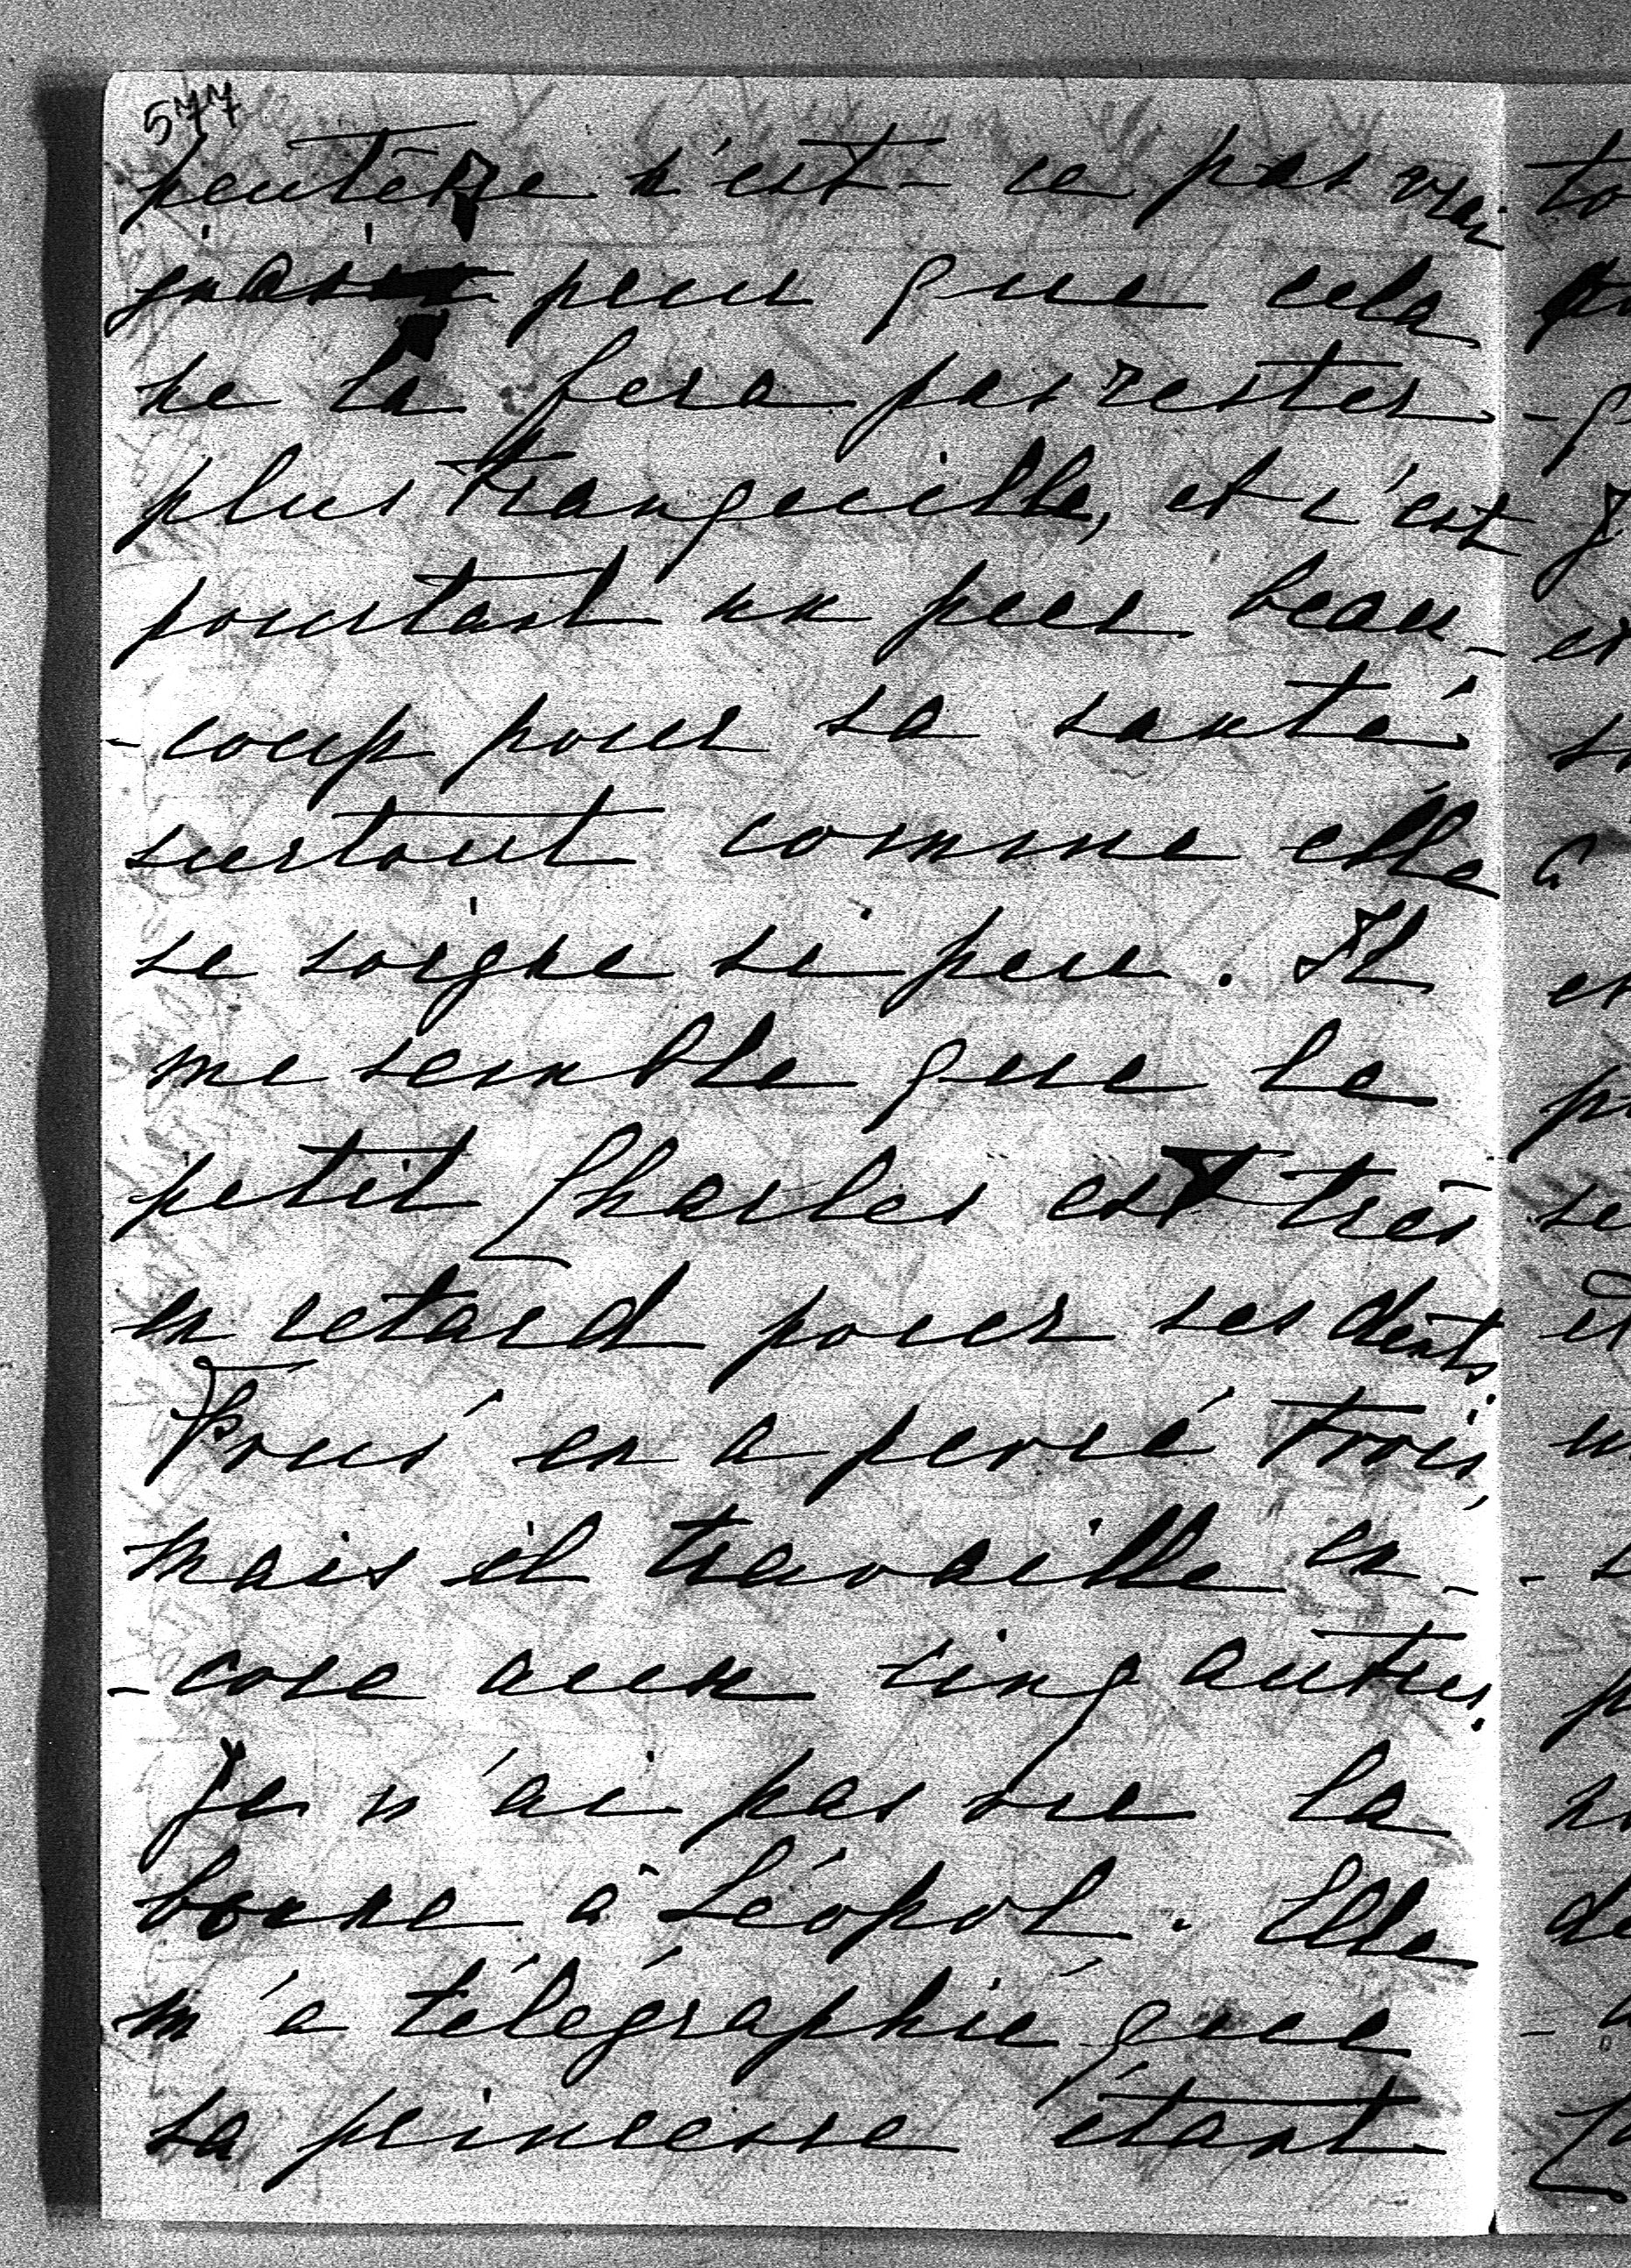 577
peutêtre n'est-ce pas vrai
j'ai peur que cela
ne la fera pas rester
plus tranquille, et c'est
pourtant un peu beau-
-coup pour sa santé
surtout comme elle
se soigne si peu. Il
me semble que le
petit Charles est très
en retard pour ses dents
en a percé trois
mais il travaille en-
-core aux cinq autres.
Je n'ai pas vu la
bonne à Léopol. Elle
m'a télégraphié que
sa princesse étant